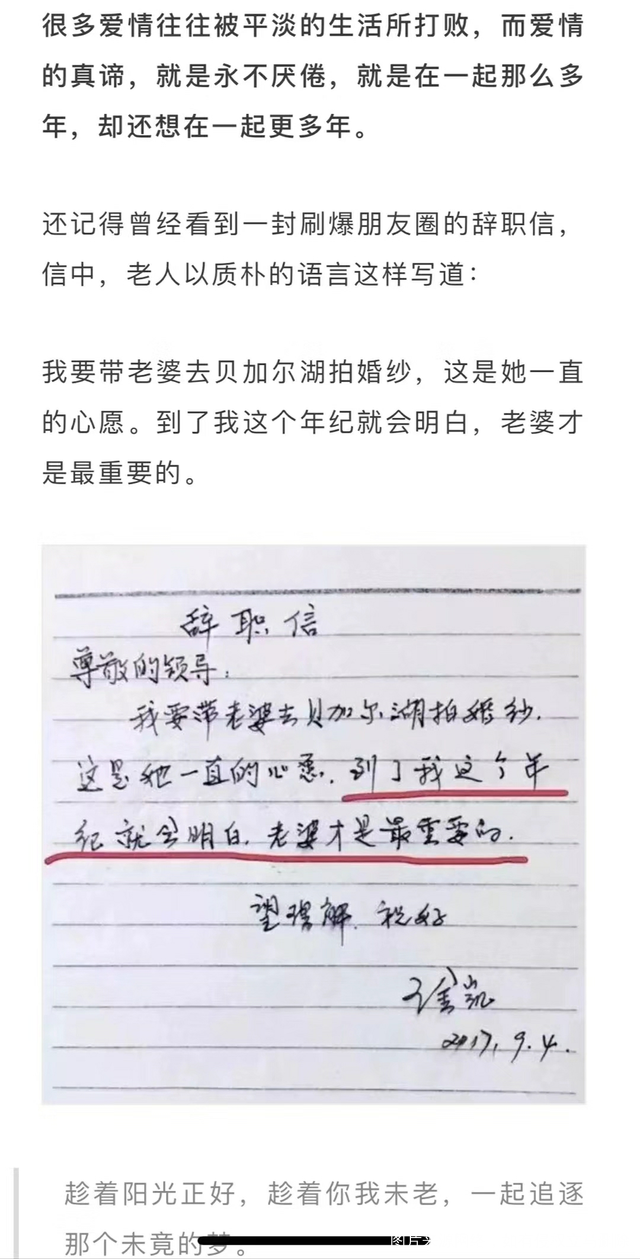 很多爱情往往被平淡的生活所打败，而爱情
的真谛，就是永不厌倦，就是在一起那么多
年，却还想在一起更多年。
还记得曾经看到一封刷爆朋友圈的辞职信，
信中，老人以质朴的语言这样写道：
我要带老婆去贝加尔湖拍婚纱，这是她一直
的心愿。到了我这个年纪就会明白，老婆才
是最重要的。
辞职信
尊敬的领导：
我要带老婆去贝加尔湖拍婚纱.
这是她一直的心愿.到了我这个年
纪就会明白.老婆才是最重要的.
望理解.祝好
2017.9.4.
趁着阳光正好，趁着你我未老，一起追逐
那个未竟的梦。
图片